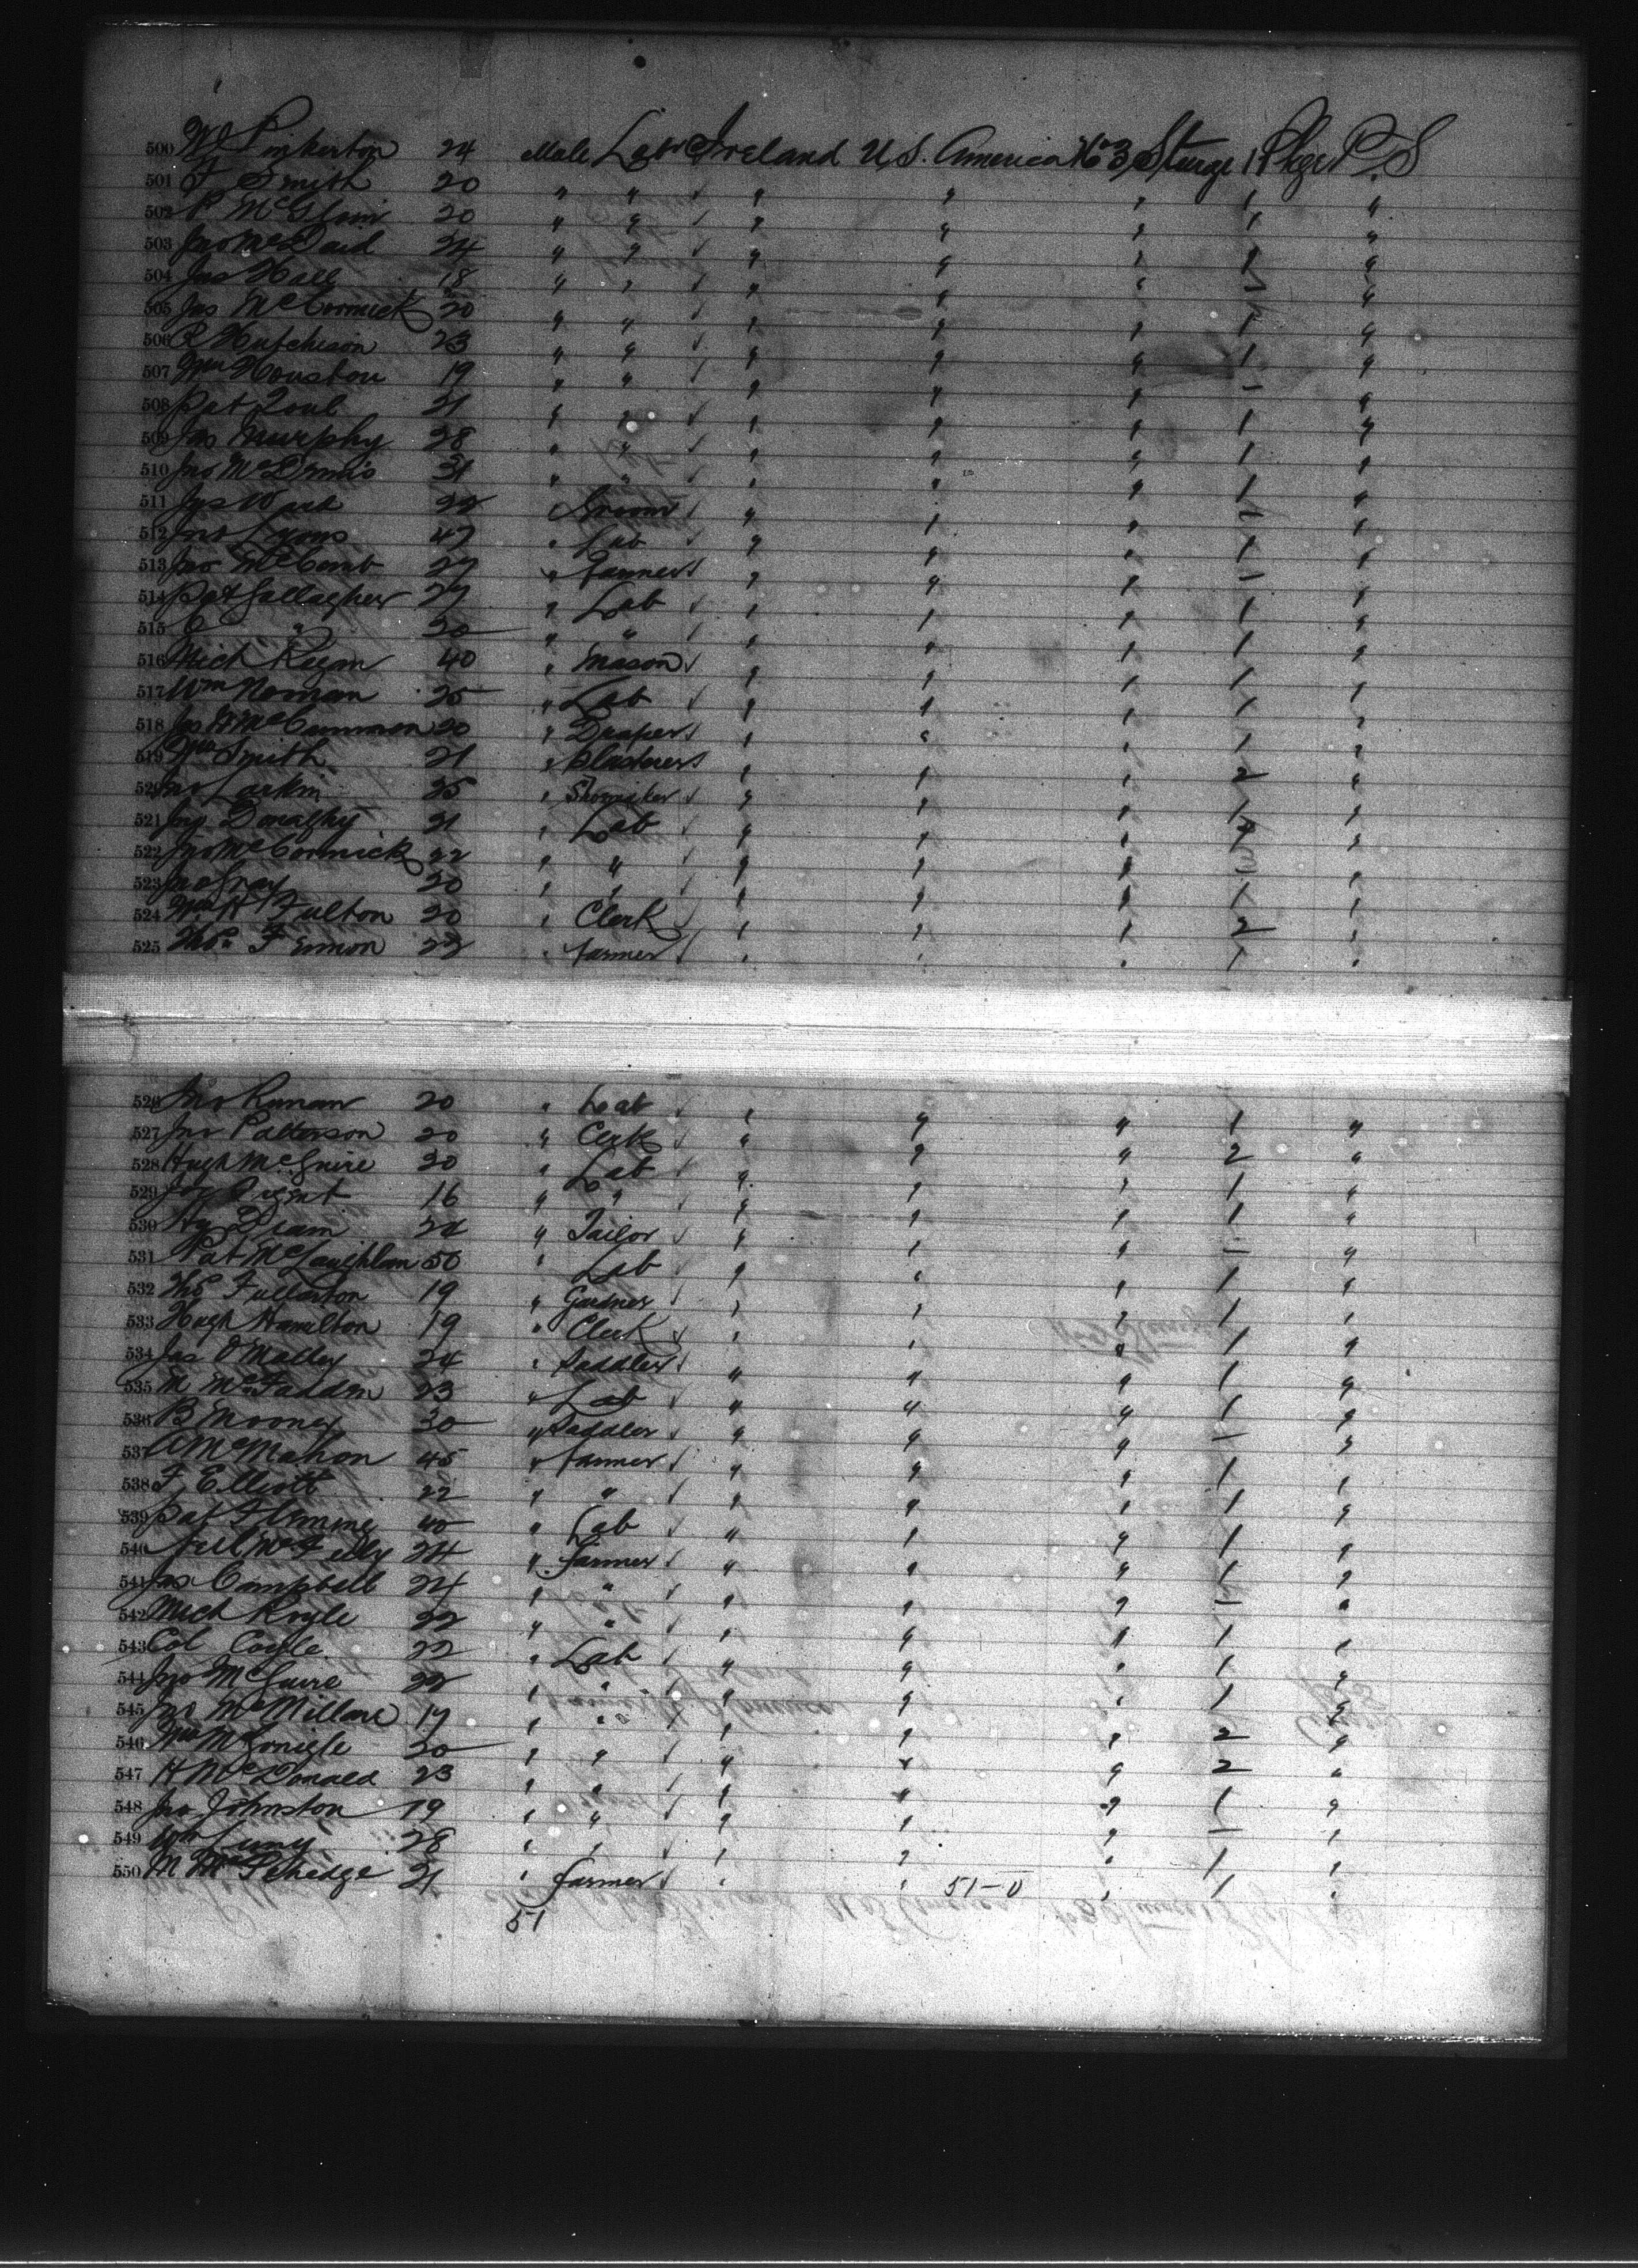 500 W Pinkerton 24 Male Labr Ireland U S. America No 3 Sturge 1 Pkge P. S
501 F Smith 20 " " " " " 1 "
502 P McGloin 20 " " " " " 1 "
503 Jno McDaid 24 " " " " " 1 "
504 Jas Hall 18 " " " " " - "
505 Jas McCormick 20 " " " " " 1 "
506 R Hutchison 23 " " " " " 1 "
507 Wm Houston 19 " " " " " - "
508 Pat 21 " " " " " 1 "
509 Jas Murphy 28 " " " " " 1 "
510 Jno 31 " " " " " 1 "
511 Jas Ward 22 " Groom " " " - "
512 Jno Lyons 47 " Lab " " " 1 "
513 Jno McComb 27 " farmer " " " - "
514 Pat Gallagher 27 " Lab " " " 1 "
515 C " 20 " " " " " 1 "
516 Mich Regan 40 " Mason " " " 1 "
517 Wm Noman 25 " Lab " " " 1 "
518 McCammon 20 " Draper " " " 1 "
519 Wm Smith 21 " Plasterer " " " 2 "
520 Jno Larkin 25 " Shomaker " " " 1 "
521 Donaghy 21 " Lab " " " "
522 Jno McCormick 22 " " " " " "
523 Jno Gray 20 " " " " " 1 "
524 Wm H Fulton 20 " Clerk " " " 2 "
525 Thos 22 " farmer " " " 1 "
526 Jno 20 " Lab " " " 1 "
527 Jno Patterson 20 " Clerk " " " 2 "
528 Hugh McGuire 30 " Lab " " " 1 "
529 16 " " " " " 1 "
530 Hy 24 " Tailor " " " - "
531 Pat McLaughlan 50 " Lab " " " 1 "
532 Thos Fullarton 19 " Gardner " " " 1 "
533 Hugh Hamilton 19 " Clerk " " " 1 "
534 Jas O'Malley 24 " Saddler " " " 1 "
535 M McFadden 23 " Lab " " " 1 "
536 B Mooney 30 " Saddler " " " - "
537 A McMahon 45 " farmer " " " 1 "
538 F Elliott 22 " " " " " 1 "
539 Pat Fleming 40 " Lab " " " 1 "
540 Neil McFeely 24 " farmer " " " 1 "
541 Jas Campbell 24 " " " " " - "
542 Mich 22 " " " " " 1 "
543 Col Coyle 22 " Lab " " " 1 "
544 Jno McGuire 22 " " " " " 1 "
545 Jno McMillan 17 " " " " " 2 "
546 Wm McGonigle 20 " " " " " 2 "
547 H McDonald 23 " " " " " 1 "
548 Jno Johnston 19 " " " " " - "
549 Wm 28 " " " " " 1 "
550 M 21 " farmer " " " 1 "
51-0
51